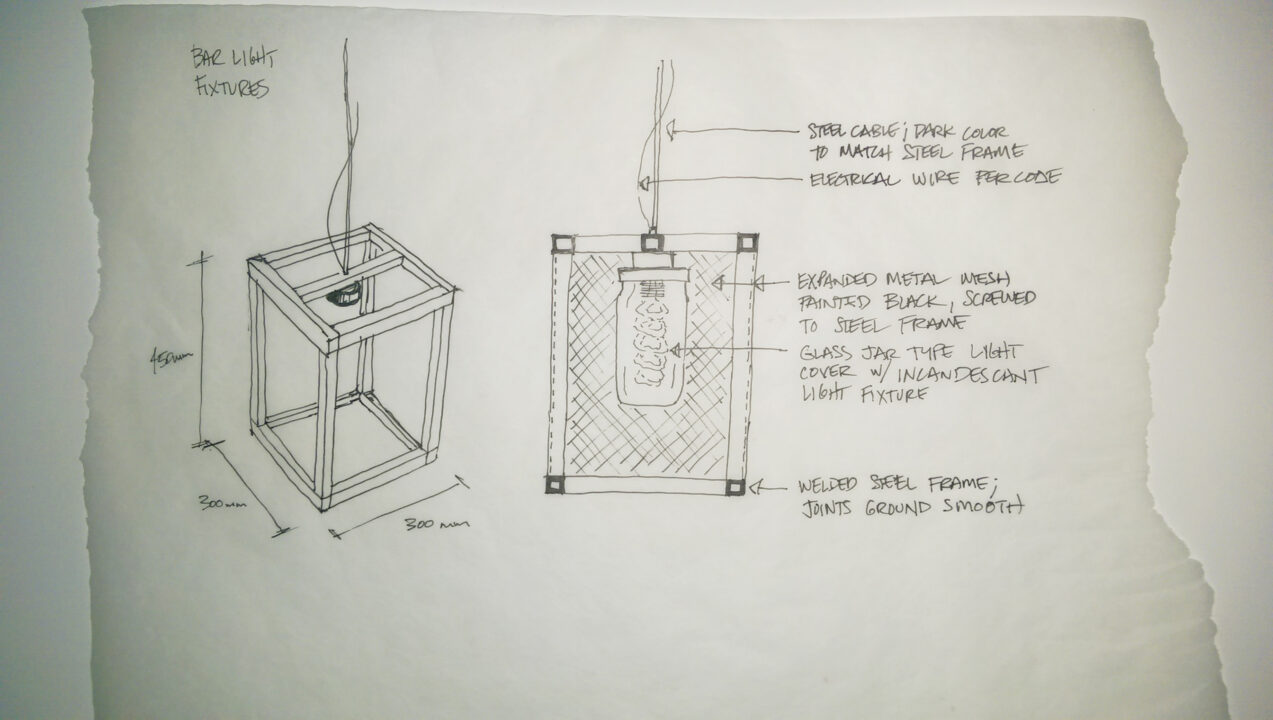 BAR LIGHT
FIXTURES
STEEL CABLE; DARK COLOR
TO MATCH STEEL FRAME
ELECTRICAL WIRE PER CODE
EXPANDED METAL MESH
PAINTED BLACK, SCREWED
TO STEEL FRAME
GLASS JAR TYPE LIGHT
COVER W/ INCANDESCANT
LIGHT FIXTURE
WELDED STEEL FRAME;
JOINTS GROUND SMOOTH
450mm
300mm
300mm